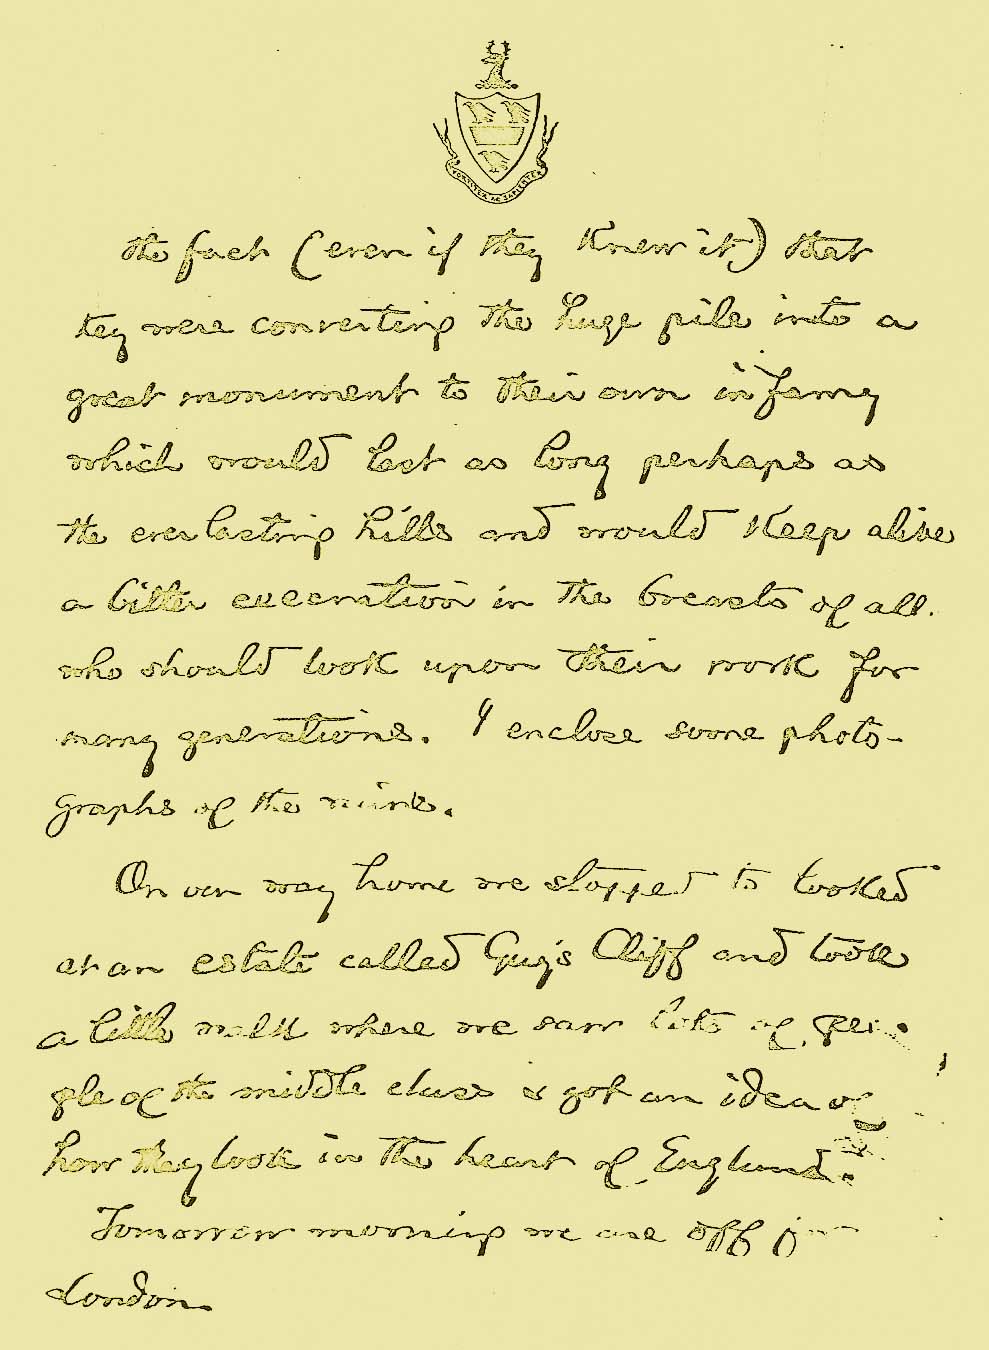 FORTITER AC SAPIENTER
the fact (even if they knew it) that
tey were converting the huge pile into a
great monument to their own infamy
which would last as long perhaps as
the everlasting hills and would keep alive
a bitter execration in the breasts of all
who should look upon their work for
many generations. I enclose some photo-
graphs of the ruins.
On our way home we stopped to looked
at an estate called Guy's Cliff and took
a little walk where we saw lots of peo
ple of the middle class & got an idea of
how they look in the heart of England.
Tomorrow morning we are off for
London.